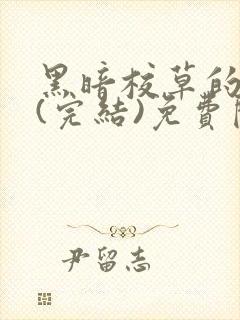 黑暗校草的
(完結)免費
尹留志